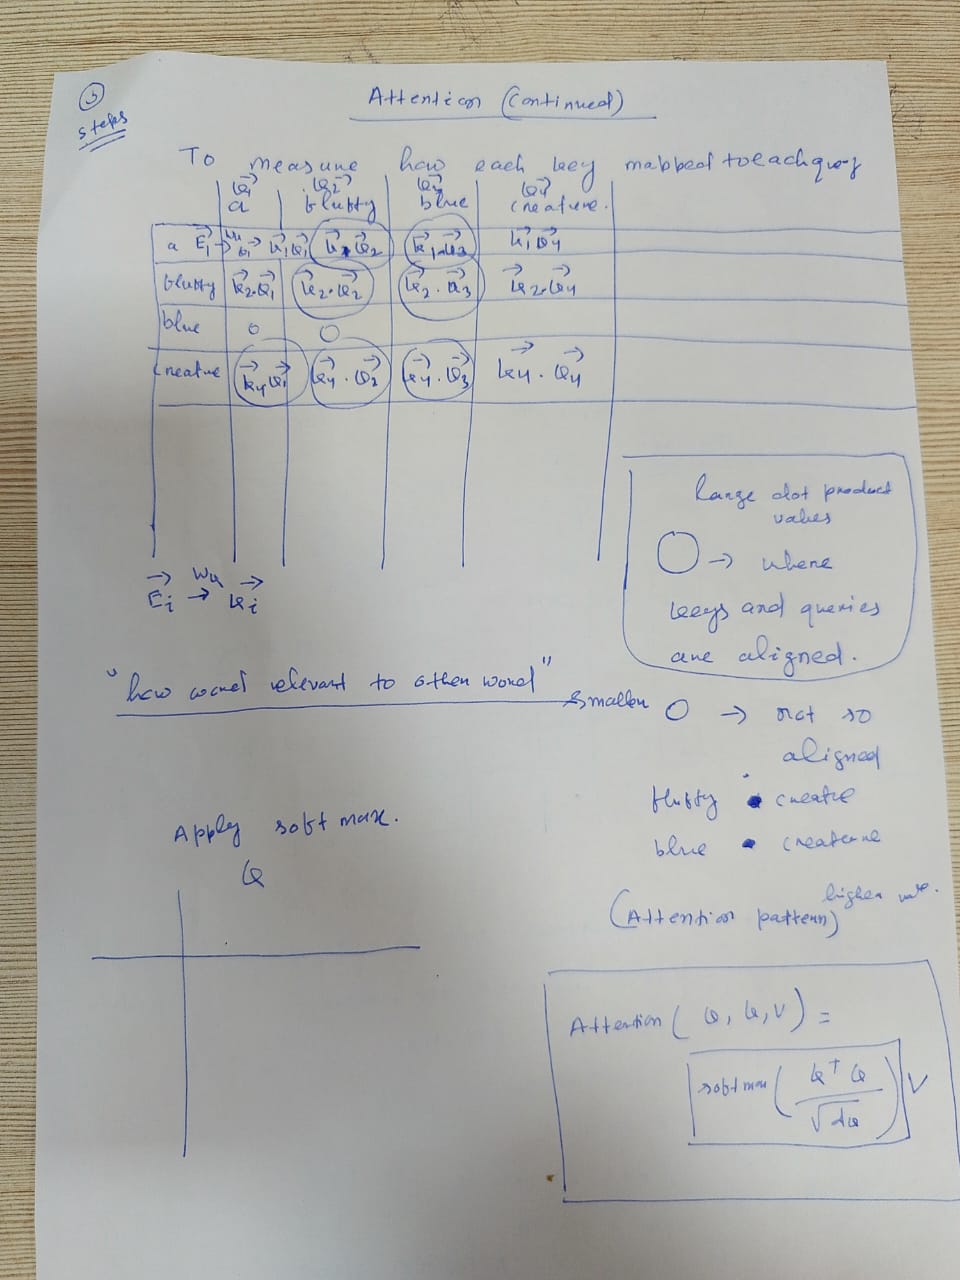 ③
steps
Attention (Continued)
To measure how each key mapped to each query
Q₁→ Q₂→ Q₃→ Q₄→
a fluffy blue creature.
a E₁→ → K₁→ K₁→Q₁→ K₁→.Q₂→ K₁→.Q₃→ K₁→Q₄→
fluffy K₂→.Q₁→ K₂→.Q₂→ K₂→.Q₃→ K₂→.Q₄→
blue o O
creature K₄→Q₁→ K₄→.Q₂→ K₄→.Q₃→ K₄→.Q₄→
Large dot product
values
O → where
keys and queries
are aligned.
Wk
Ei→ → Ki→
"how word relevant to other word"
Smaller O → not so
aligned
fluffy • creatue
blue • creature
higher
(Attention pattern)
Apply softmax.
Q
Attention (Q, K, V) =
softmax (KᵀQ / √dk) V